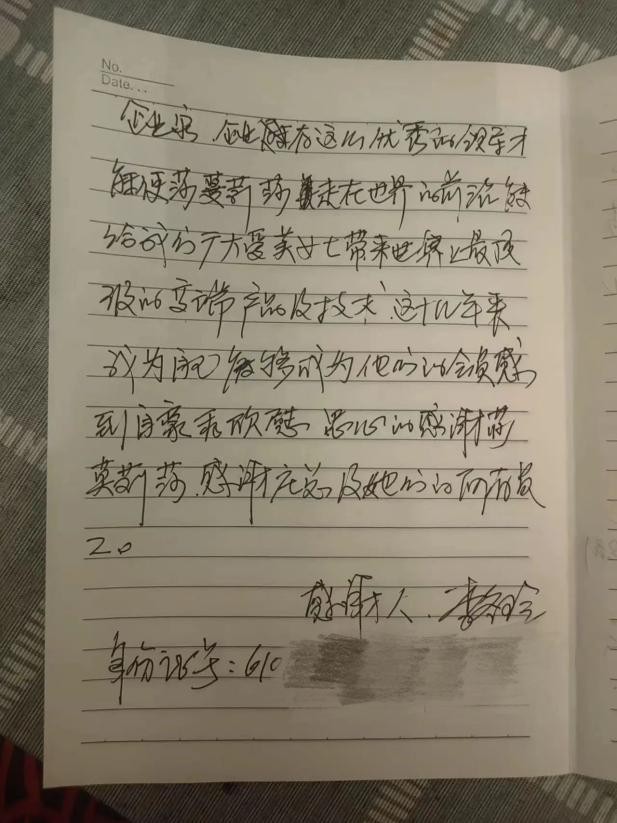 No.
Date...
企业家 企业有这么优秀的领导才
能使莎蔓莉莎走在世界的前沿能
给我们广大爱美女士带来世界上最顶
级的高端产品及技术 这十几年来
我为自己能够成为他们的会员感
到自豪和欣慰 忠心的感谢莎
莉莎.感谢庄总及她们的所有员
工。
感谢人.李
身份证号:610